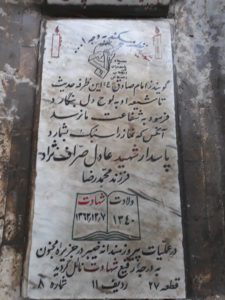 گویند ز امام صادق این طرفه حدیث
تا شیعه او به لوح دل بنگارد
فرمود به شفاعت ما نرسد
آنکس که نماز را سبک بشمارد
پاسدار شهید عادل صرافت نژاد
فرزند محمدرضا
ولادت
۱۳۴۰
شهادت
۱۳۶۲,۱۲,۷
در عملیات پیروزمندانه خیبر در جزیره مجنون
به درجه رفیع شهادت نائل گردید
قطعه ۲۷ ردیف ۱۱ شماره ۸